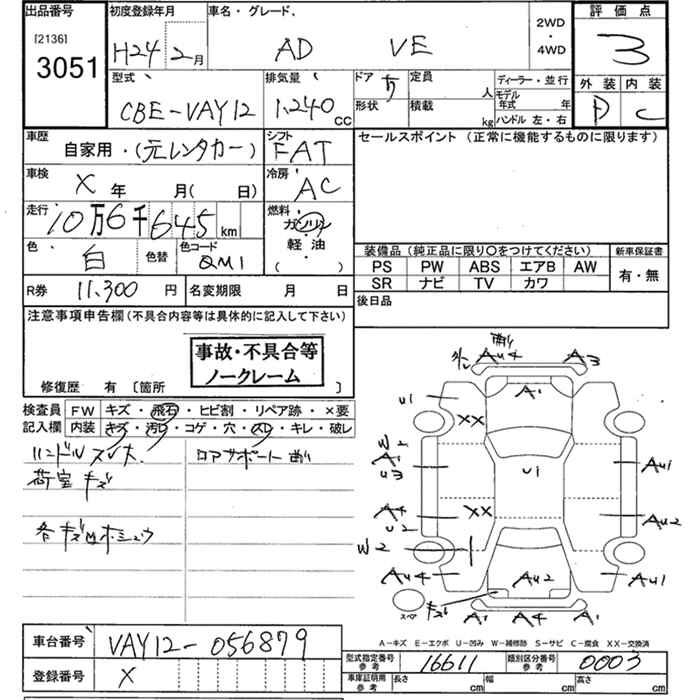 出品番号 初度登録年月 車名・グレード、 2WD・4WD 評価点
[2136]
3051 H24 2月 AD VE 3
型式 排気量 ドア 定員 人 ディーラー・並行 外装 内装
CBE-VAY12 1,240 CC 5 形状 積載 kg モデル年式 年 ハンドル 左・右 D C
車歴 自家用・(元レンタカー) シフト FAT セールスポイント (正常に機能するものに限ります)
車検 X 年 月(日) 冷房 AC
走行 10万6千645km 燃料 ガソリン・軽油・( )
色 白 色替 色コード QM1
装備品 (純正品に限り〇をつけてください) 新車保証書
PS PW ABS エアB AW 有・無
SR ナビ TV カワ
R券 11,300 円 名変期限 月 日 後日品
注意事項申告欄(不具合内容等は具体的に記入して下さい)
事故・不具合等
ノークレーム
修復歴 有 〔箇所 〕
検査員 FW キズ・飛石・ヒビ割・リペア跡・×要
記入欄 内装 キズ・汚レ・コゲ・穴・スレ・キレ・破レ
ハンドルスレ大 コアサポート曲り
荷室キズ
各キズ凹ホシュウ
Au4 A3
A1
u1 XX
W2
A1
u3 u1 Au1
A4 XX Au2
u2
W2
Au4 Au2 Au1
スペア キズ A1 A4 A1
A-キズ E-エクボ U-凹み W-補修跡 S-サビ C-腐食 XX-交換済
車台番号 VAY12-056879
型式指定番号 参考 16611 類別区分番号 参考 0003
登録番号 X
車庫証明用 参考 長さ cm 幅 cm 高さ cm